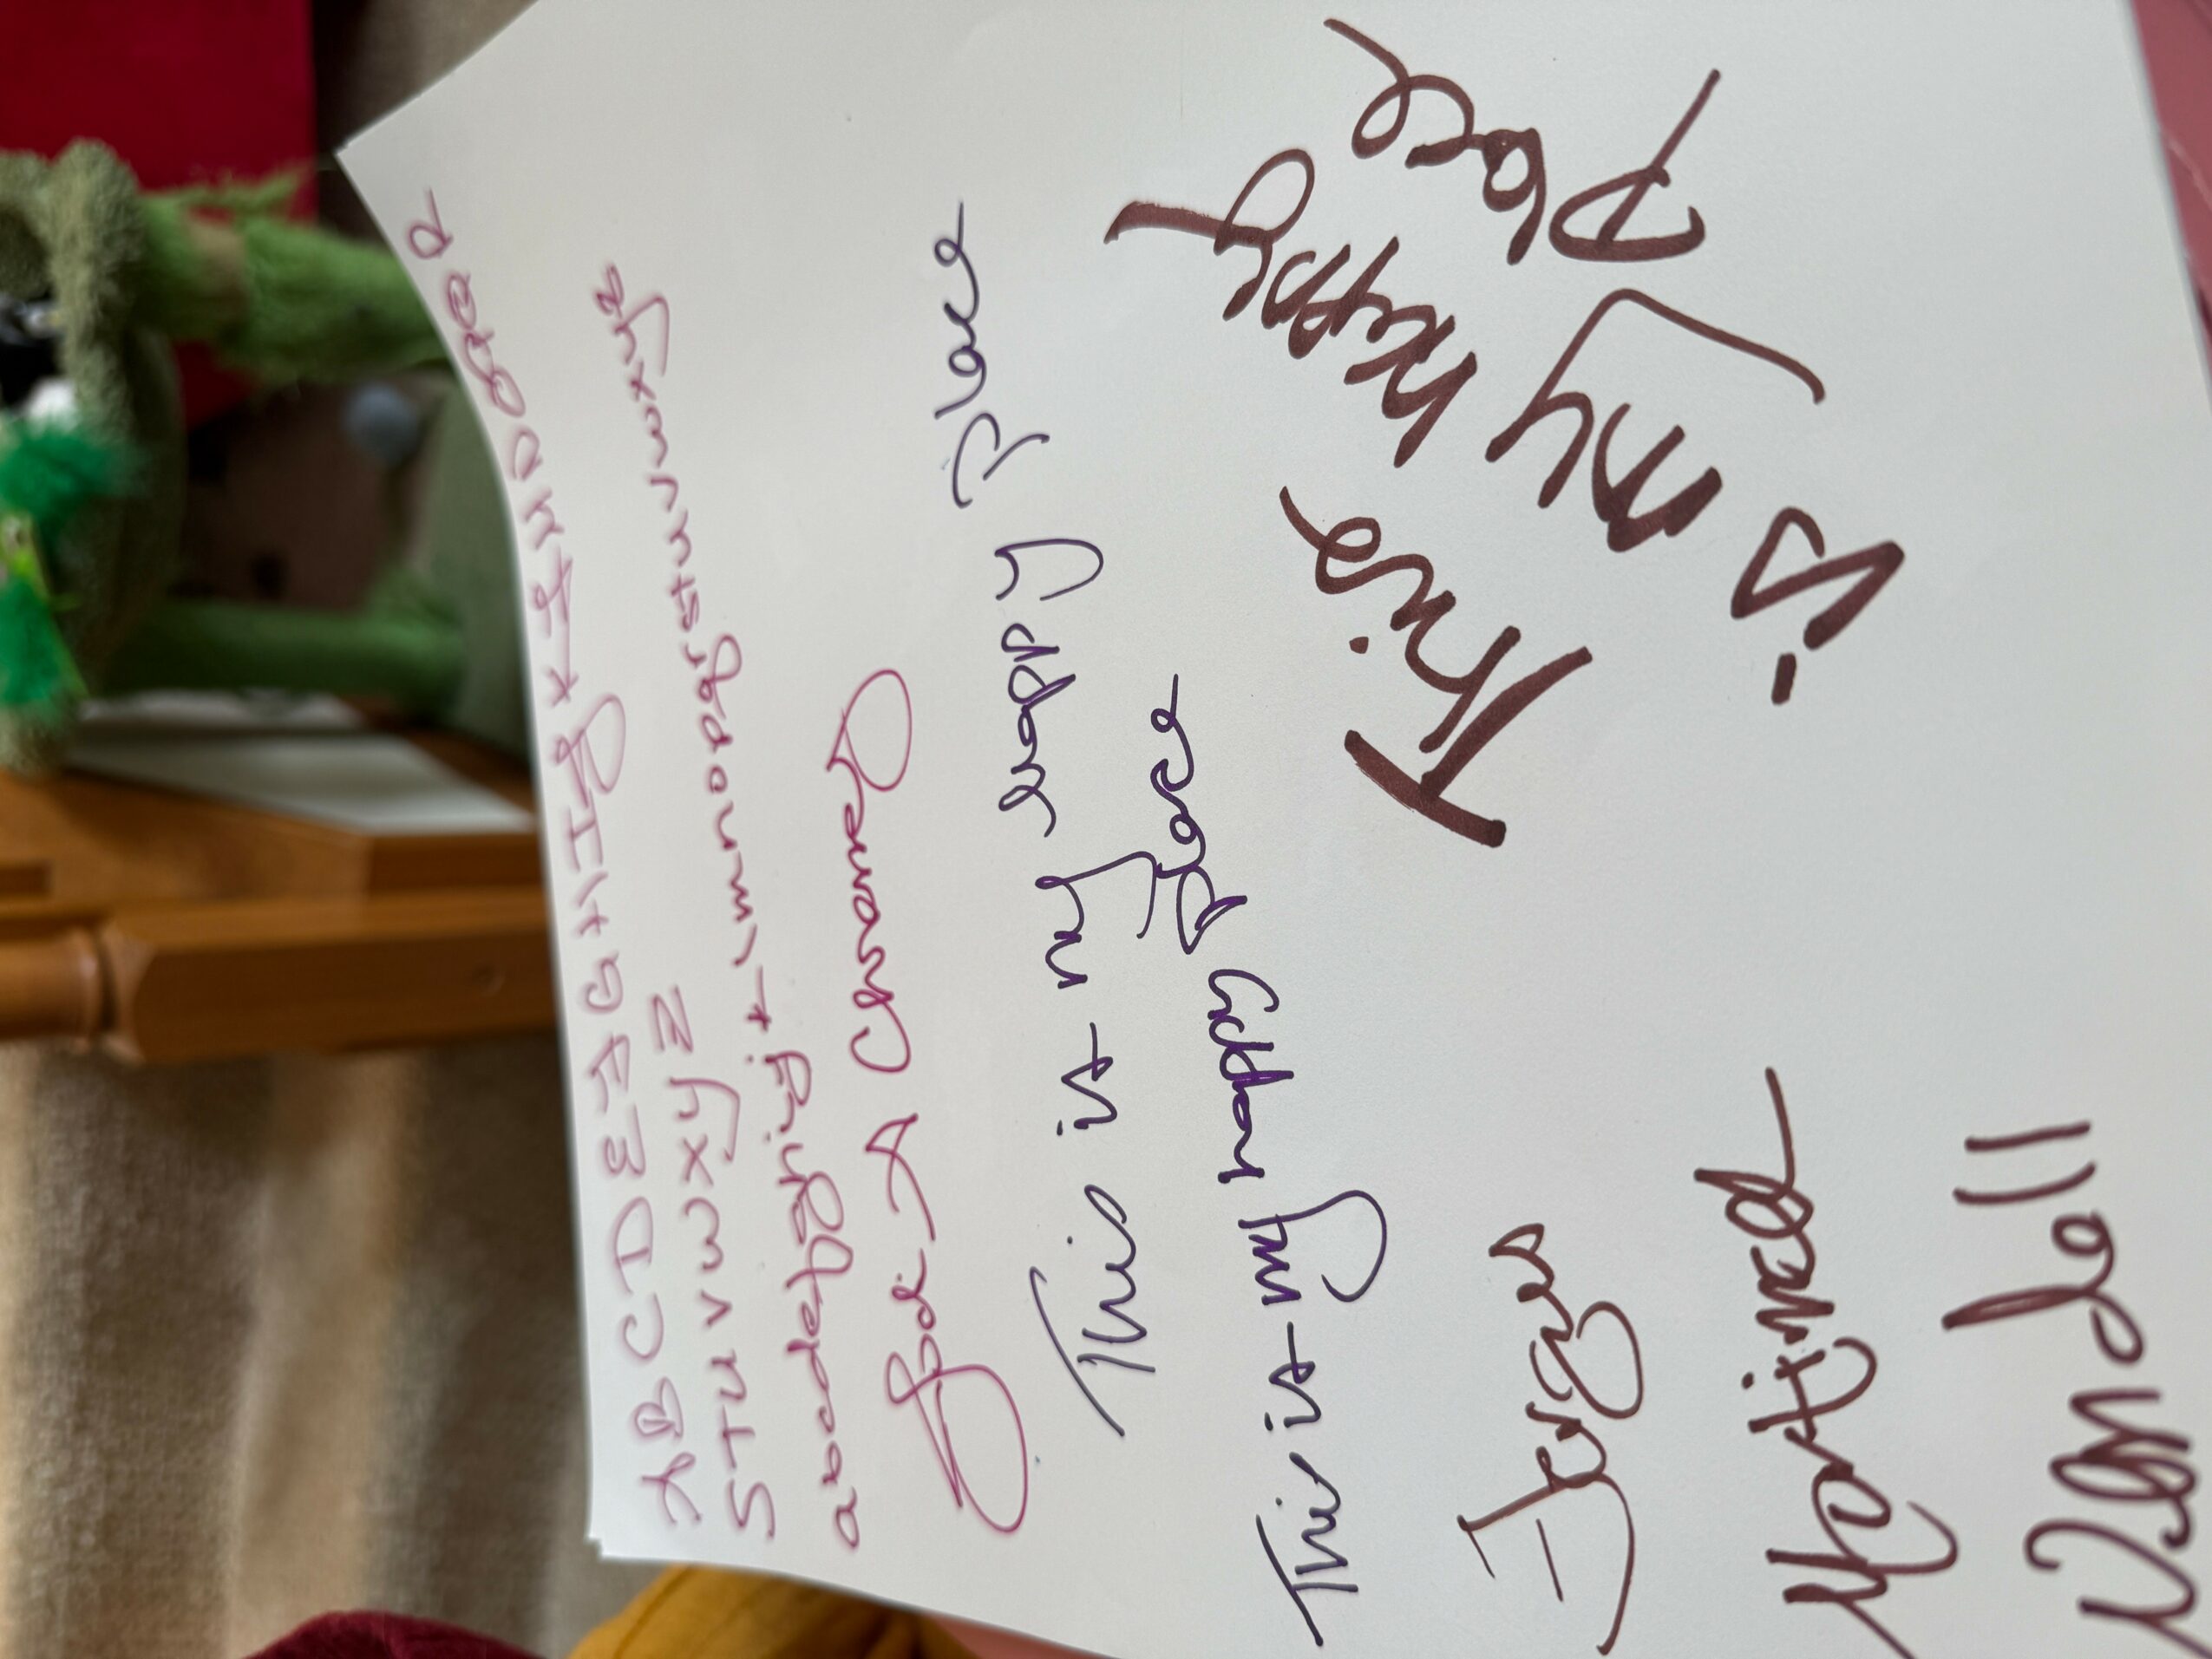 A B C D E F G H I J K L M N O P Q R
S T U V W X Y Z
abcdefghijklmnopqrstuvwxyz
A
This is my happy Place
This is my happy Place
This
is my happy
Place
Fergus
Mortimer
Wendell